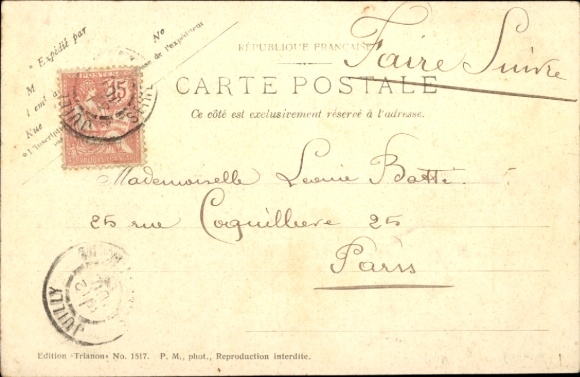 * Expédié par
No
M
1 cmt
Rue
RÉPUBLIQUE FRANÇAISE
Faire Suivre
CARTE POSTALE
Ce côté est exclusivement réservé à l'adresse.
POSTES
15
Mademoiselle Leonie Batti
25 rue Coquilliere 25
Paris
JUILLY
Edition «Trianon» No. 1517. P. M., phot., Reproduction interdite.